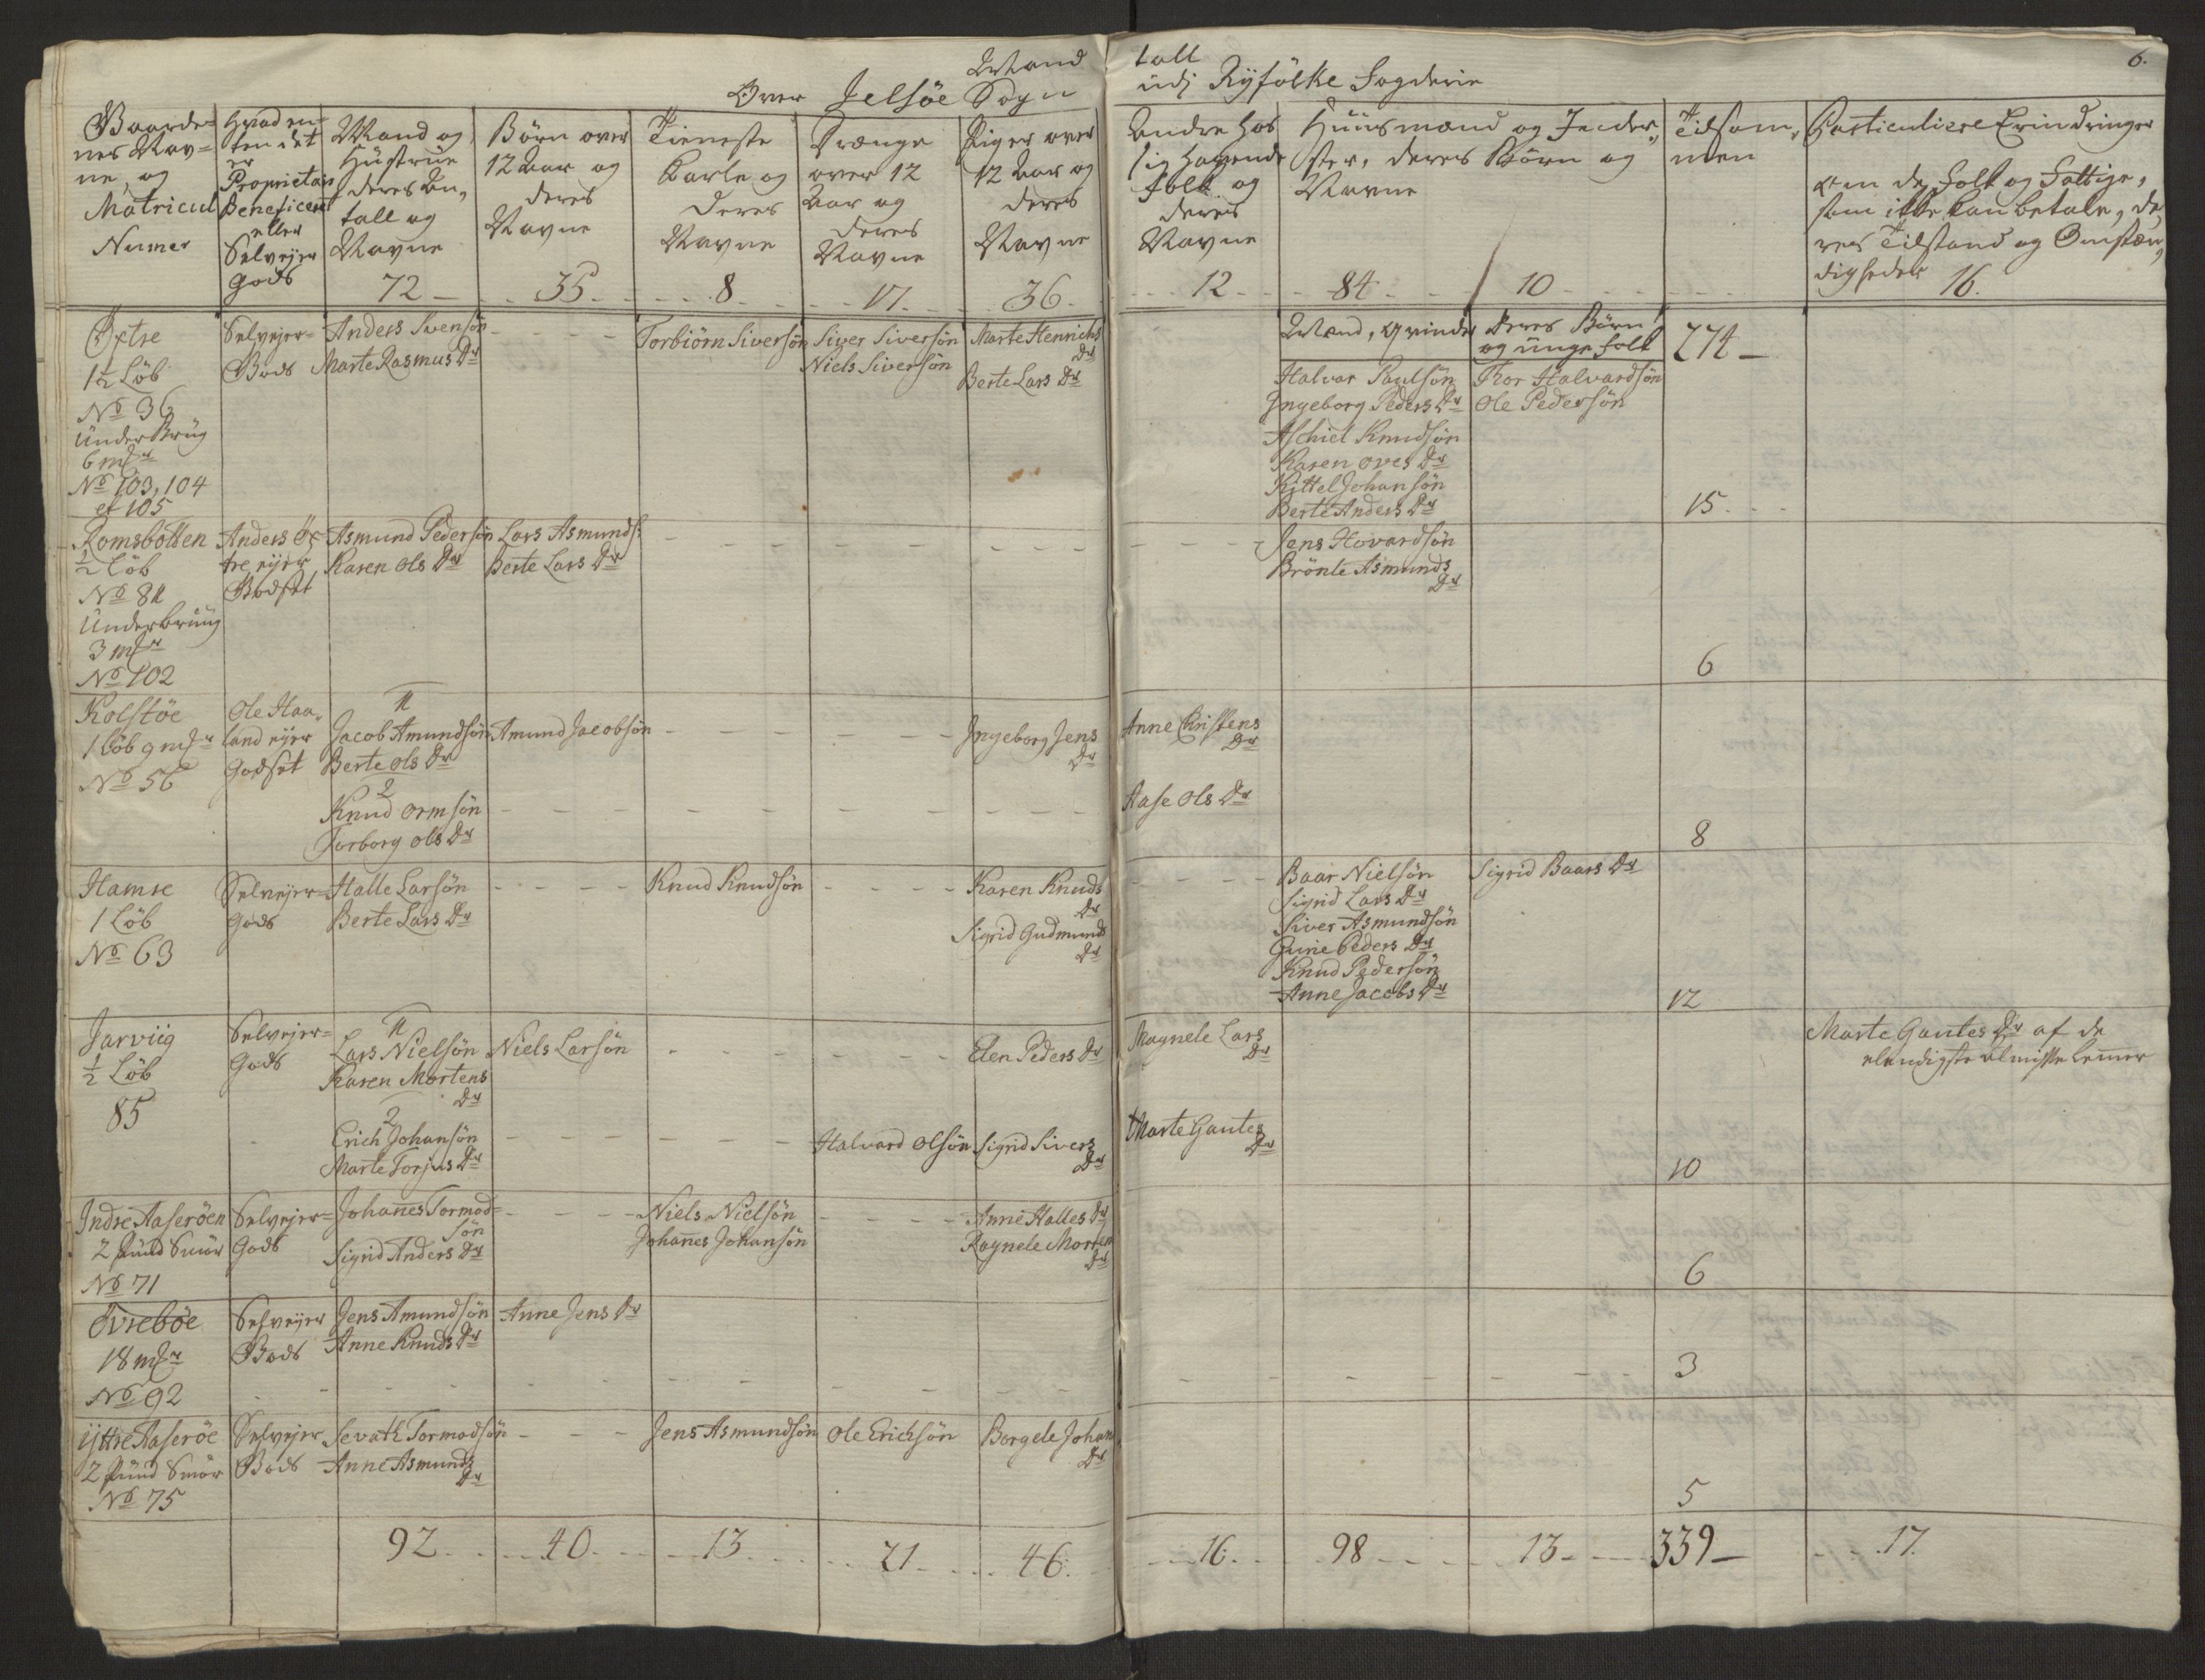 Mand tall
Over Jelsöe Sogn udj Ryfölke Fogderie
6.
Gaarde-
nes Nav-
ne, og
Matricul
Numer
Hvad en-
ten det
er
Proprietair
Beneficeret
eller
Selvejer
Gods
Mand og
Hustrue
deres An-
tall og
Navne
72
Börn over
12 Aar og
deres
Navne
35
Tieneste
Karle og
deres
Navne
8
Drænge
over 12
Aar og
deres
Navne
17
Piger over
12 Aar og
deres
Navne
36
Andre hos
sig havende
folk og
deres
Navne
12
Huusmænd og Inder-
ster, deres Börn og
Navne
84 10
Tilsam-
men
Particuliere Erindringer
om de folk og Fattige,
som ikke kan betale, de-
res Tilstand og Omstæn-
digheder 16.
Mænd, qvinder
deres Börn
og unge folk
274
Östre
1½ Löb
No 36
Underbrug
6 mkr
No 103, 104
et 105
Selvejer-
Gods
Anders Svensön
Marte Rasmus Dr
Torbiörn Siversön
Siver Siversön
Niels Siversön
Marte Henrichs
Dr
Berte Lars Dr
Halvor Paulsön
Ingeborg Peders Dr
Aschiel Knudsön
Karen Oves Dr
Kittel Johansön
Berte Anders Dr
Thor Halvardsön
Ole Pedersön
15
Romsbotten
½ Löb
No 84
Underbrug
3 mkr
No 102
Anders Ös-
tre ejer
Godset
Asmund Pedersön
Karen Ols Dr
Lars Asmunds:
Berte Lars Dr
Jens Hovardsön
Brönle Asmunds
Dr
6
Kolstöe
1 Löb 9 mkr
No 56
Ole Haa-
land ejer
Godset
1
Jacob Amundsön
Berte Ols Dr
2
Knud Ormsön
Torborg Ols Dr
Amund Jacobsön
Ingeborg Jens
Dr
Anne Christens
Dr
Aase Ols Dr
8
Hamre
1 Löb
No 63
Selvejer-
Gods
Halle Larsön
Berte Lars Dr
Knud Knudsön
Karen Knuds
Dr
Sigrid Gudmunds
Dr
Baar Nielsön
Sigrid Lars Dr
Siver Asmundsön
Gurie Peders Dr
Knud Pedersön
Anne Jacobs Dr
Sigrid Baars Dr
12
Jarviig
½ Löb
85
Selvejer-
Gods
1
Lars Nielsön
Karen Mortens
Dr
2
Erich Johansön
Marte Torjus Dr
Niels Larsön
Halvard Olsön
Elen Peders Dr
Sigrid Sivers
Dr
Magnele Lars
Dr
Marte Gautes
Dr
10
Marte Gautes Dr af de
elendigste almisse lemmer
Indre Aaseröen
2 Pund Smör
No 71
Selvejer-
Gods
Johannes Tormod-
sön
Sigrid Anders Dr
Niels Nielsön
Johannes Johansön
Anne Halles Dr
Ragnele Morten
Dr
6
Övreböe
18 mkr
No 92
Selvejer
Gods
Jens Amundsön
Anne Knuds Dr
Anne Jens Dr
3
Yttre Aaseröe
2 Pund Smör
No 75
Selvejer
Gods
Sevath Tormodsön
Anne Asmunds
Dr
Jens Asmundsön
Ole Erichsön
Borgele Johans
Dr
5
92 40 13 21 46 16 98 13 339 17.